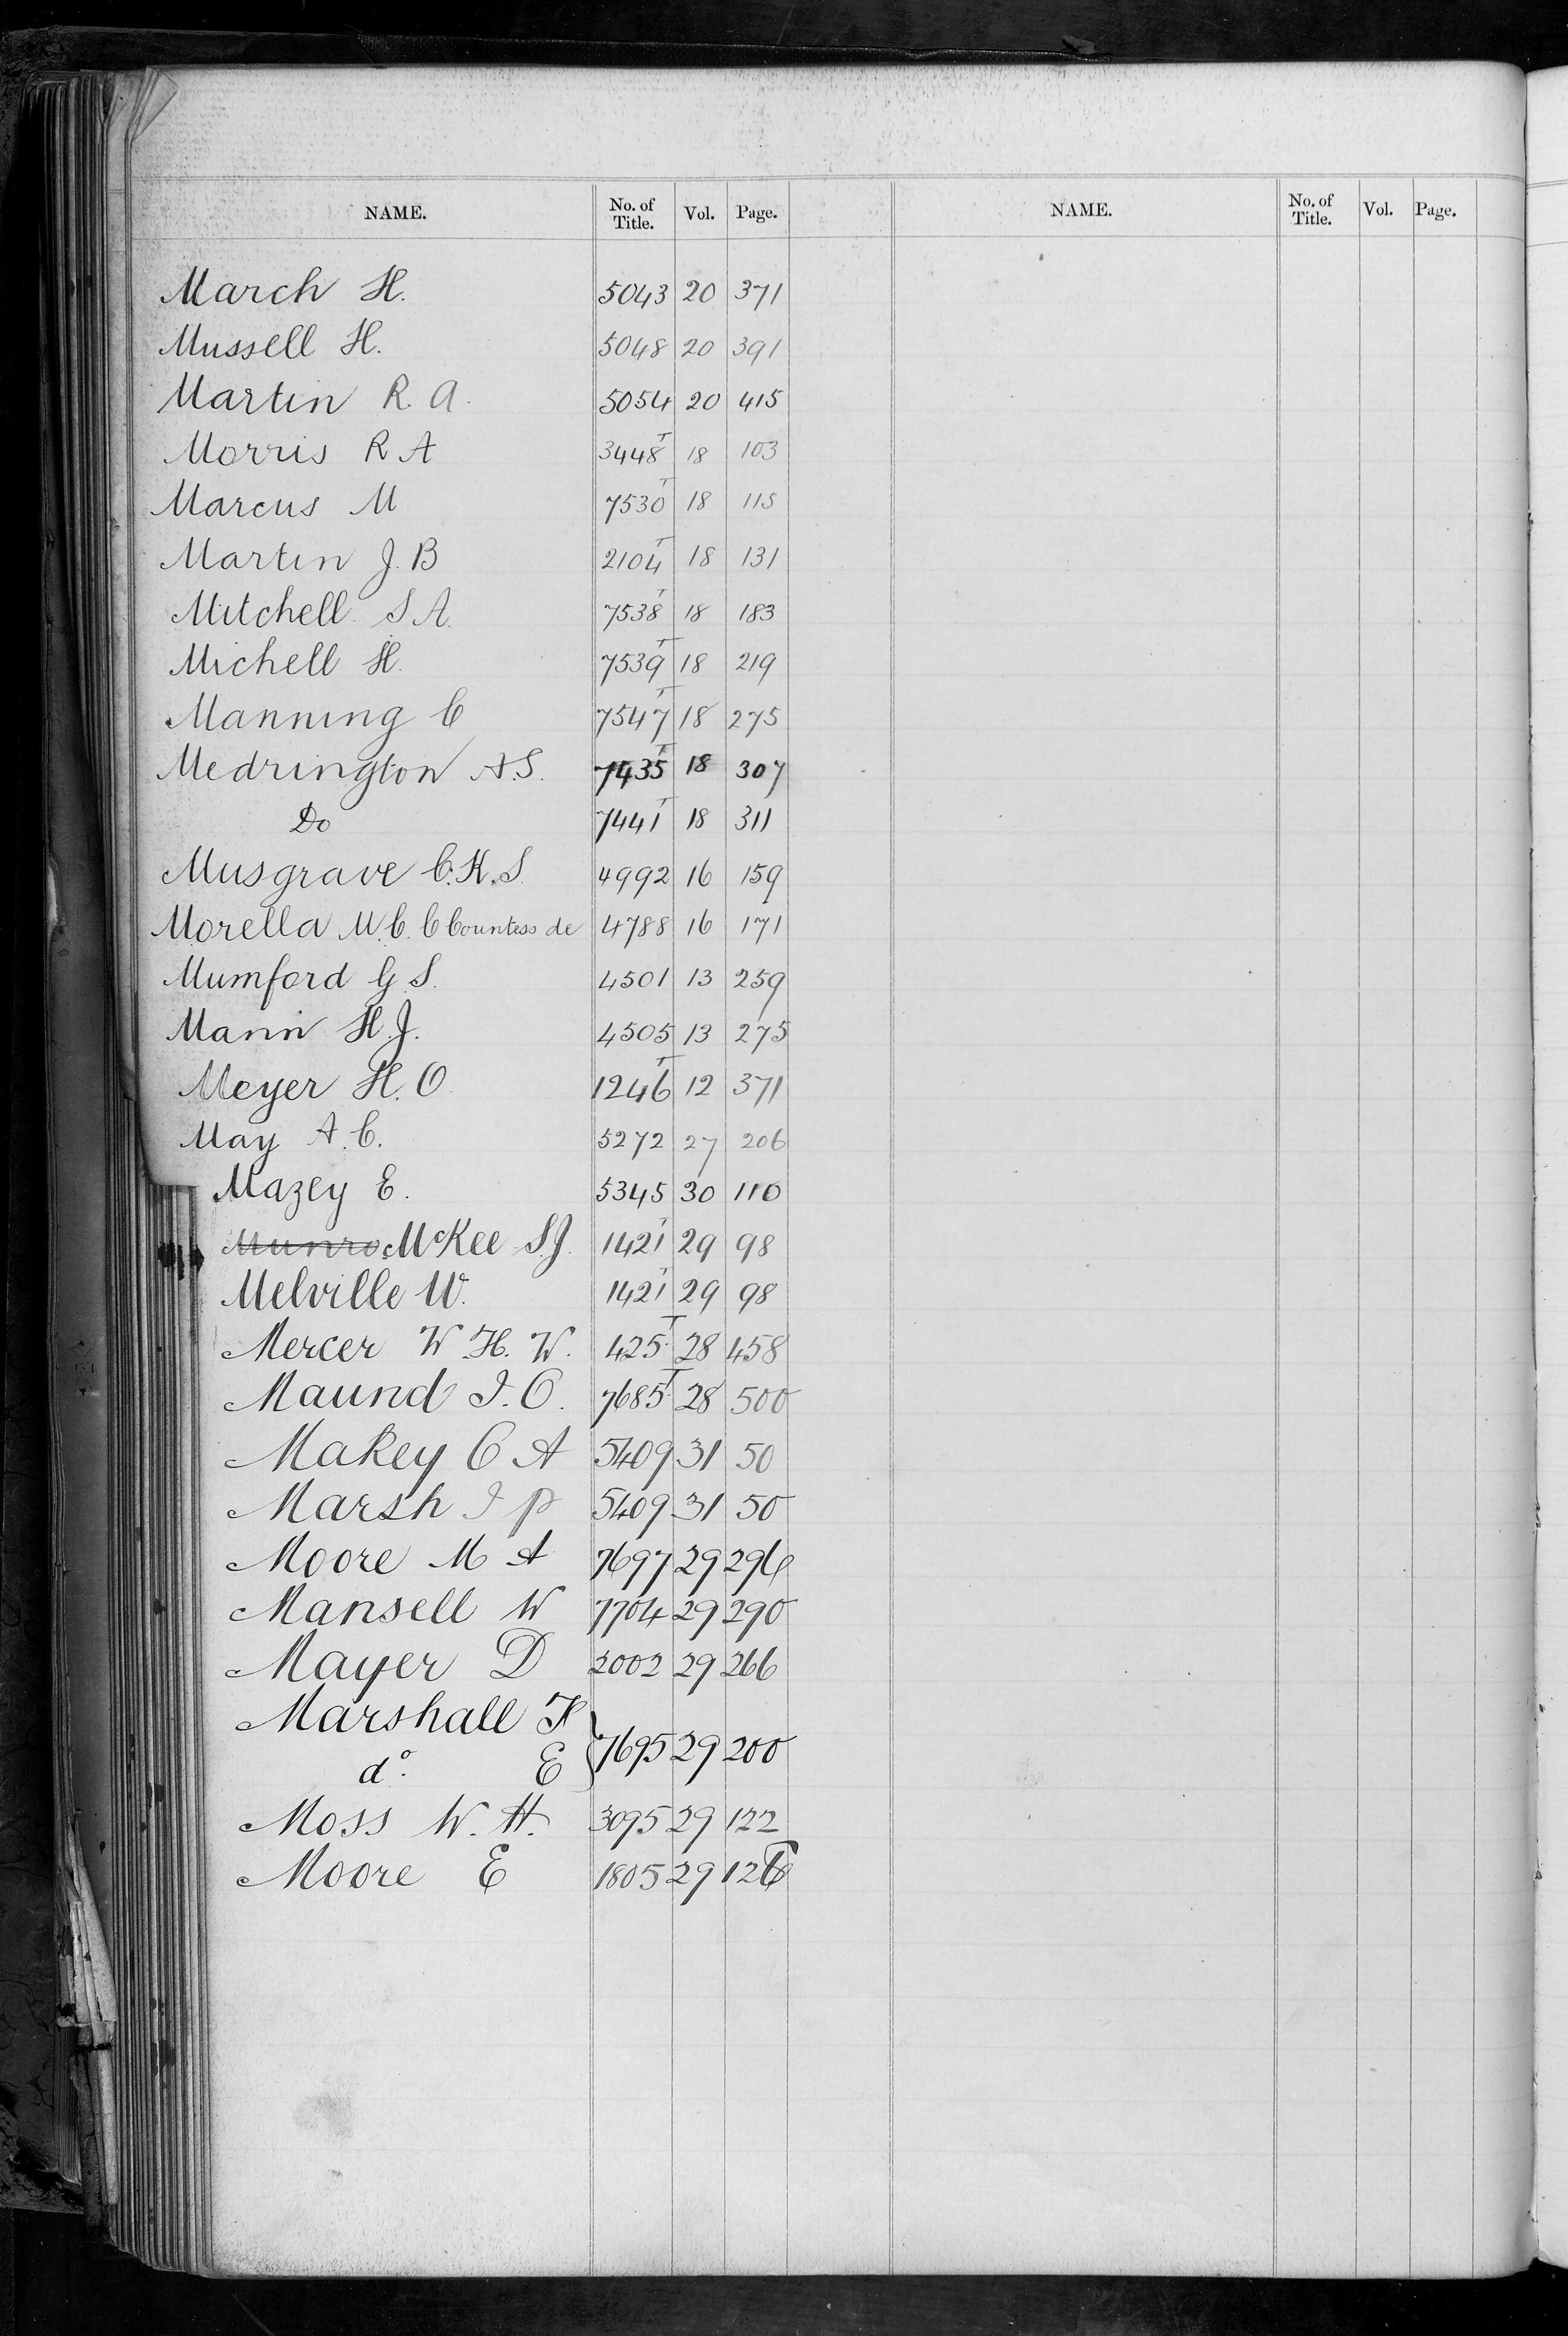 NAME. No. of Title. Vol. Page. NAME. No. of Title. Vol. Page.
March H. 5043 20 371
Mussell H. 5048 20 391
Martin R. A. 5054 20 415
Morris R A 3448 T 18 103
Marcus M 7530 T 18 115
Martin J. B 2104 T 18 131
Mitchell S A. 7538 T 18 183
Michell H. 7539 T 18 219
Manning C 7547 T 18 275
Medrington A.S. 7435 T 18 307
Do 7441 T 18 311
Musgrave C.K.S. 4992 16 159
Morella M.C.C Countess de 4788 16 171
Mumford G S. 4501 13 259
Mann H.J. 4505 13 275
Meyer H. O 1246 T 12 371
May A. C. 5272 27 206
Mazey E. 5345 30 110
Munro McKee S.J. 1421 T 29 98
Melville W. 1421 T 29 98
Mercer W. H. W. 425 T 28 458
Maund J. O. 7685 T 28 500
Makey C A 5409 31 50
Marsh J P 5409 31 50
Moore M A 7697 29 296
Mansell W 7704 29 290
Mayer D 2002 29 266
Marshall F
do. E } 7695 29 200
Moss W. H. 3095 29 122
Moore E 1805 29 126